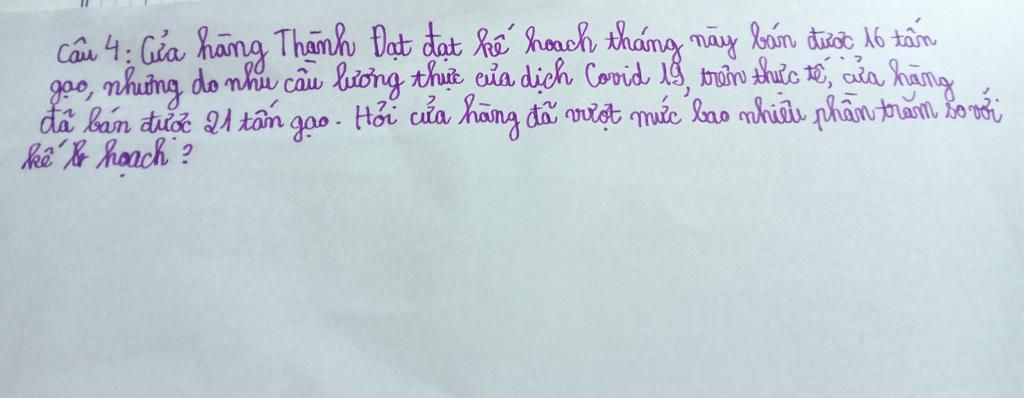 Câu 4: Cửa hàng Thành Đạt đạt kế hoach tháng này bán được 16 tấn
gạo, nhưng do nhu cầu lương thực của dịch Covid 19, trên thực tế, cửa hàng
đã bán được 21 tấn gạo. Hỏi cửa hàng đã vượt mức bao nhiêu phần trăm so với
kế hoạch?